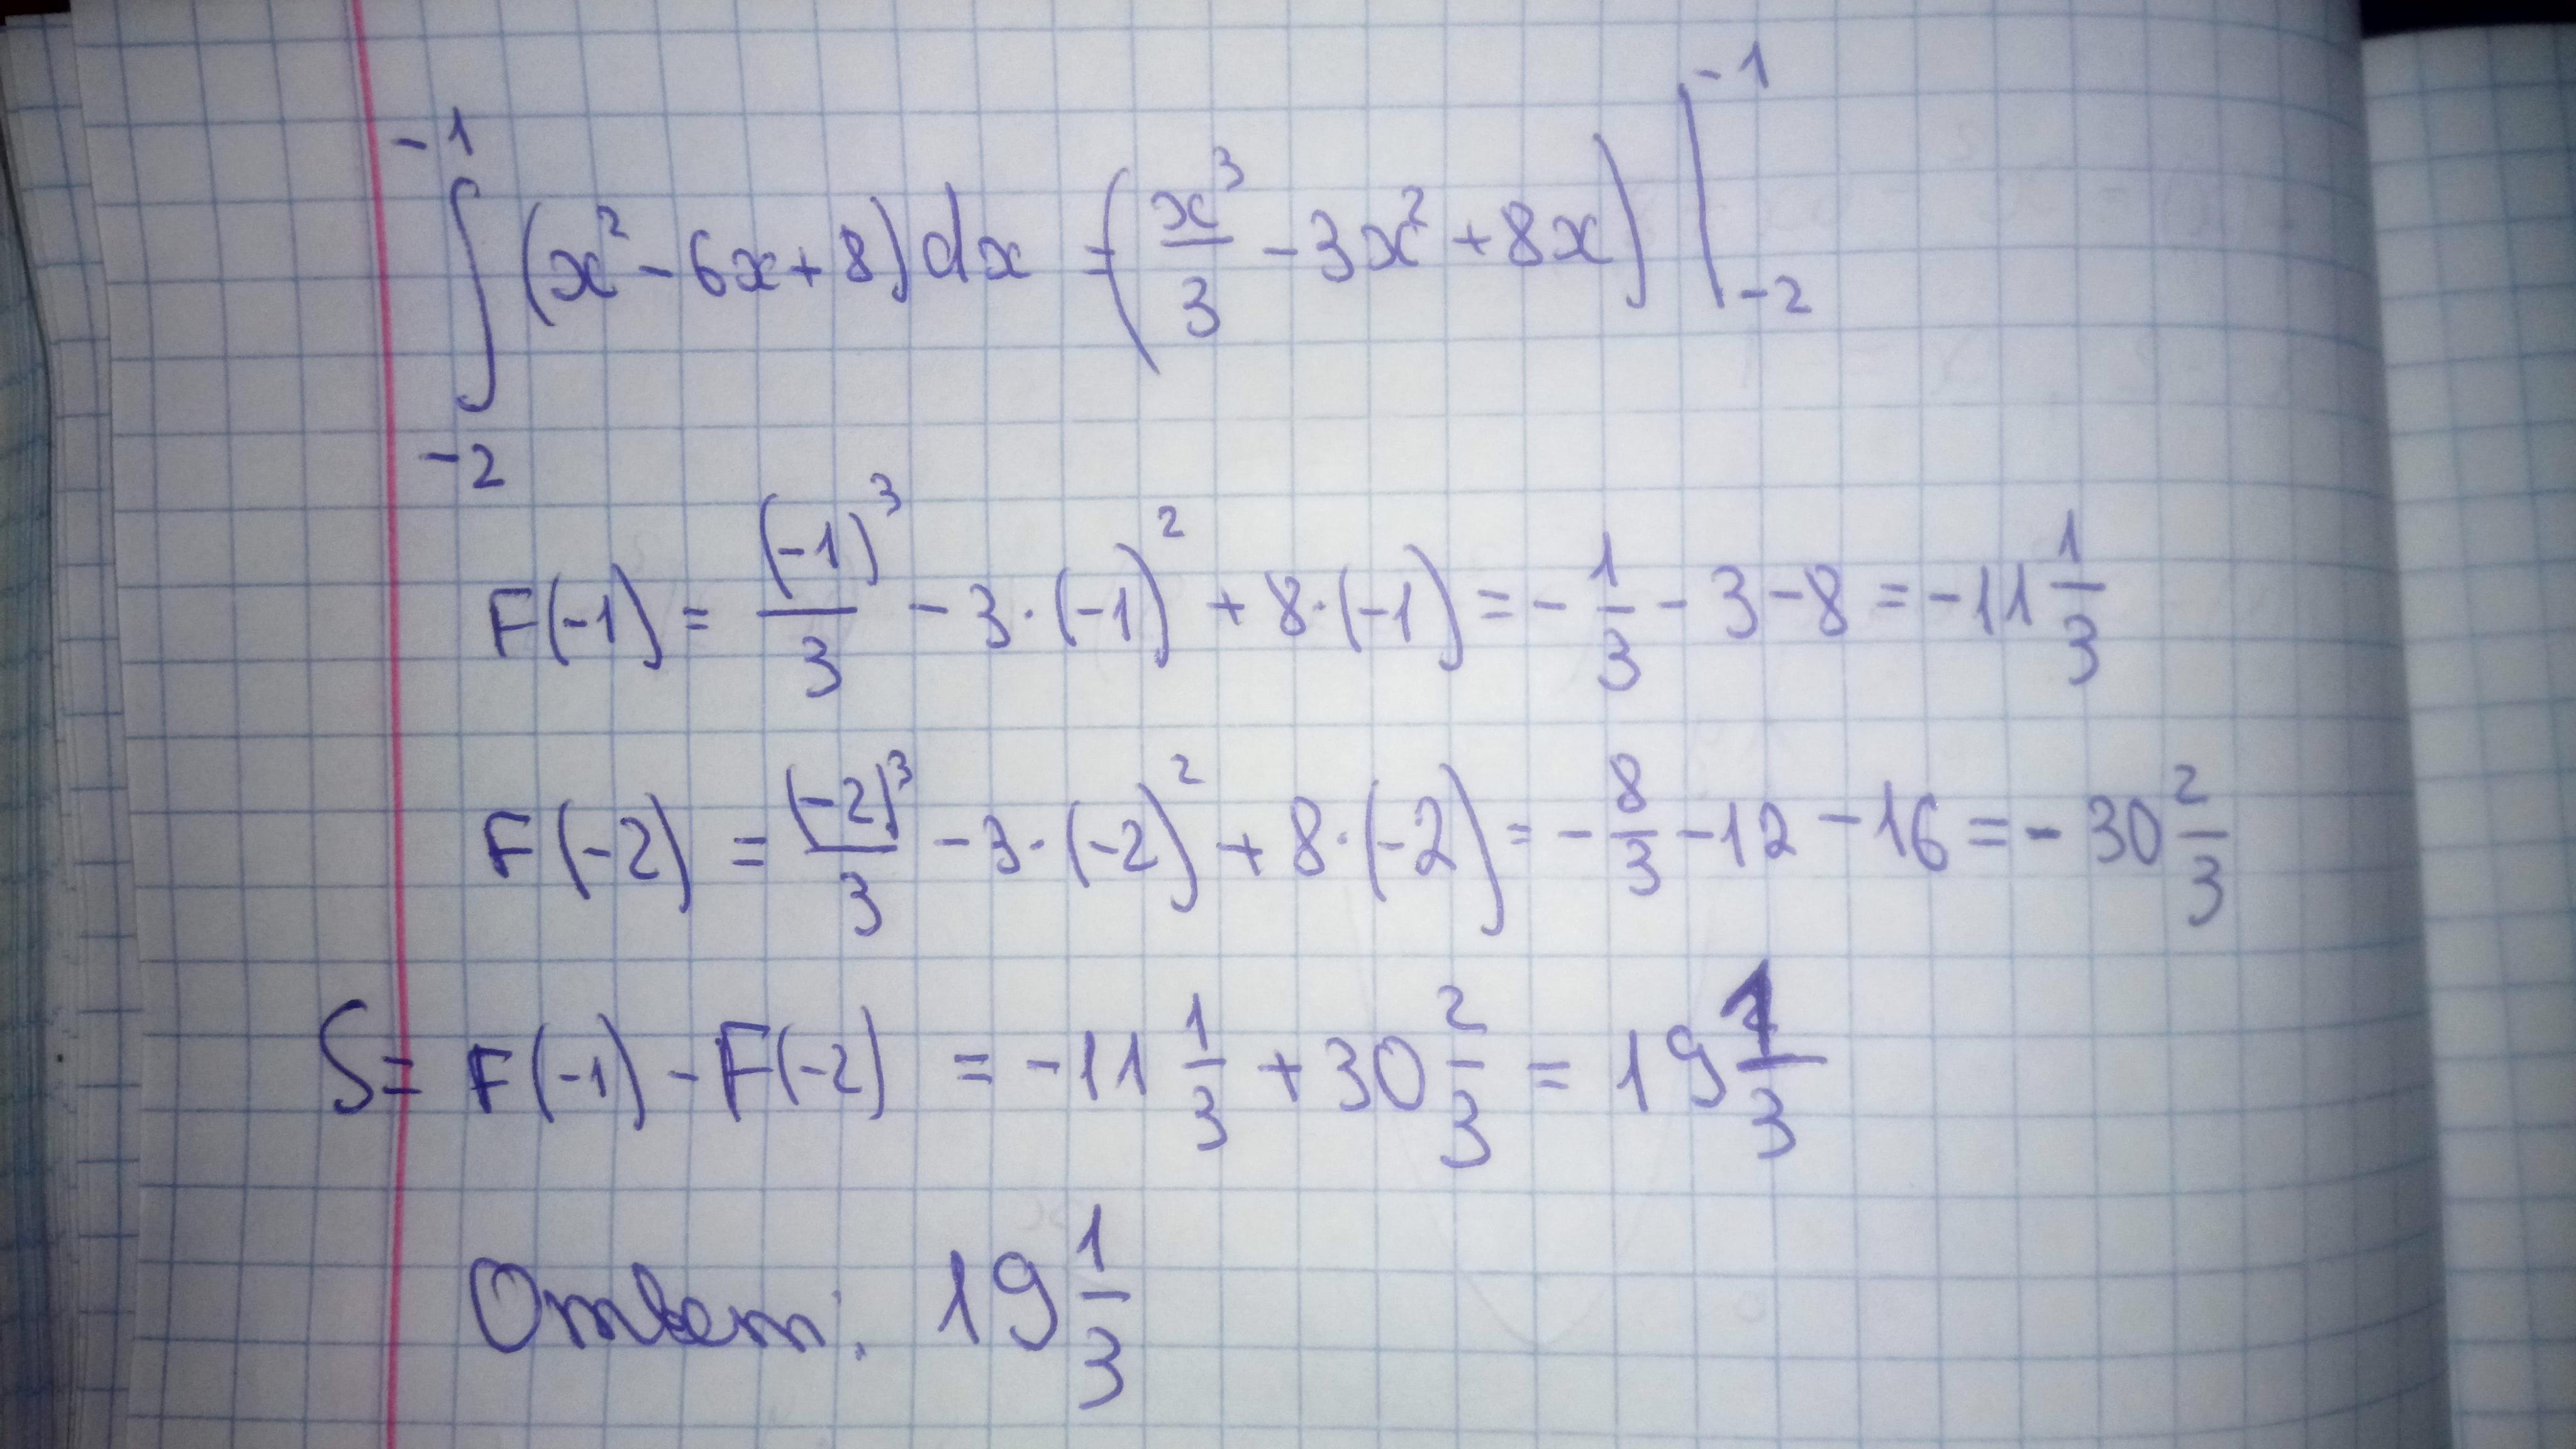 ∫_{-2}^{-1} (x² - 6x + 8) dx = (x³/3 - 3x² + 8x) |_{-2}^{-1}
F(-1) = (-1)³/3 - 3·(-1)² + 8·(-1) = - 1/3 - 3 - 8 = -11 1/3
F(-2) = (-2)³/3 - 3·(-2)² + 8·(-2) = - 8/3 - 12 - 16 = - 30 2/3
S = F(-1) - F(-2) = -11 1/3 + 30 2/3 = 19 1/3
Ответ: 19 1/3